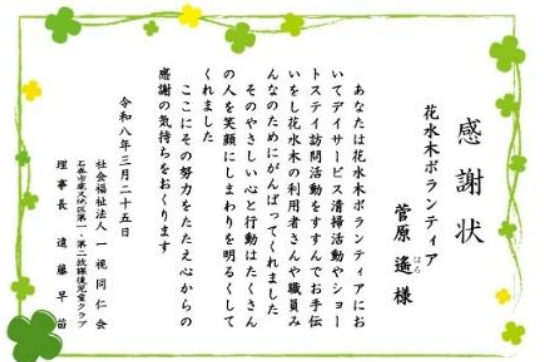 感謝状
花水木ボランティア
菅原 遙 様
はる
あなたは花水木ボランティアにお
いてデイサービス清掃活動やショー
トステイ訪問活動をすすんでお手伝
いをし花水木の利用者さんや職員み
んなのためにがんばってくれました
そのやさしい心と行動はたくさん
の人を笑顔にしまわりを明るくして
くれました
ここにその努力をたたえ心からの
感謝の気持ちをおくります
令和八年三月二十五日
社会福祉法人 一視同仁会
石巻市鹿又地区第一・第二放課後児童クラブ
理事長 遠藤早苗